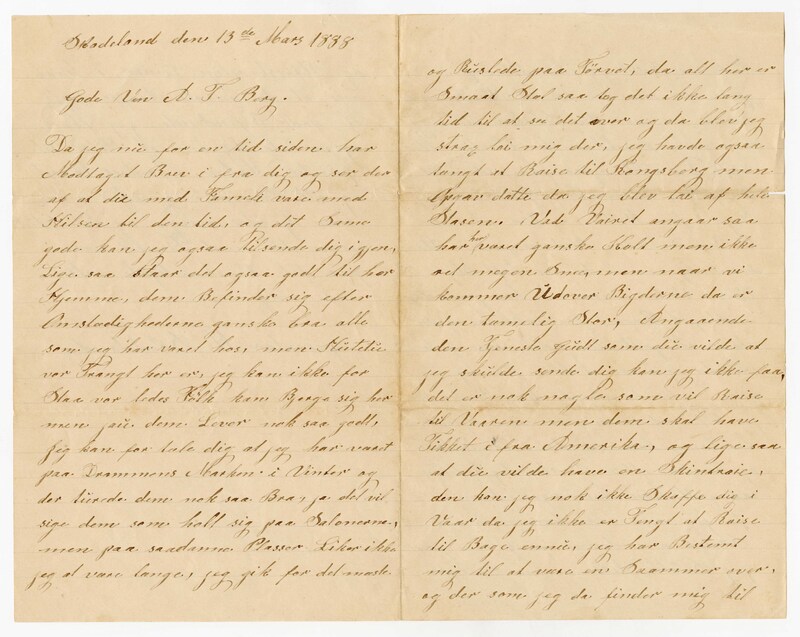 Hadeland den 13de Mars 1888
Gode Ven A. T. Berg.
Da jeg nu for en tid siden har
Modtaget Brev i fra dig og ser der
af at du med Fameli vare med
Hilsen til den tid, og det Same
gode kan jeg ogsaa Tilsende dig igjen,
Lige saa staar det ogsaa godt til her
Hjemme, dem Befinder sig efter
Omstædighederne ganske bra alle
som jeg har varet hos, men
var Trangt her er, jeg kan ikke for
Staa vor ledes Folk kan Berge sig her
men jeu dem Lever nok saa godt,
Jeg kan for tale dig at jeg har varet
paa Drammens Marken i Vinter og
der turede dem nok saa Bra, ja det vil
sige dem som holt sig paa Salonerna,
men paa saadanne Plasser Liker ikke
jeg at vare lange, jeg gik for det maste
og Ruslede paa Torvet, da alt her er
Smaat Stel saa tog det ikke lang
tid til at se det over og da blev jeg
strag lei mig der, jeg havde ogsaa
tangt at Raise til Kongsberg men
opgav datte da jeg blev lei af hele
Stasen. Vad Vairet angaar saa
har her varet ganske Kolt men ikke
vel megen Sne, men naar vi
kommer Udover Bigderne da er
den tamelig Stor, Angaaende
den Tjeneste Gudt som du vilde at
jeg skulde sende dig kan jeg ikke faa,
det er nok nogle som vil Raise
til Vaaren men dem skal have
Tikket i fra Amerika, og lige saa
at du vilde have en Skintraie,
den kan jeg nok ikke Skaffe sig i
Vaar da jeg ikke er Tengt at Raise
til Bage ennu, jeg har Bestemt
mig til at vare en Saammer over,
og der som jeg da finder mig til